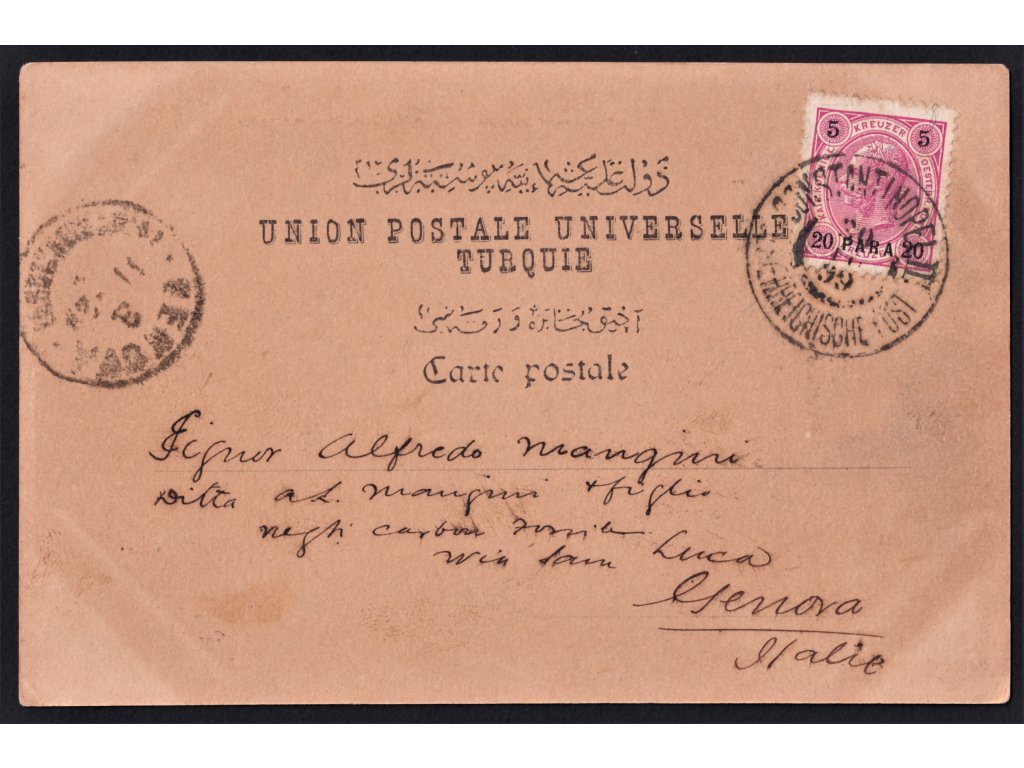 دولت علیه عثمانیه پوسته لری
UNION POSTALE UNIVERSELLE
TURQUIE
Carte postale
5 KREUZER 5
20 PARA 20
CONSTANTINOPEL II
99
OESTERREICHISCHE POST
GENOVA
11
Signor Alfredo Mangini
Ditta a L. Mangini & figlio
negli carboni fossili
via San Luca
Genova
Italie